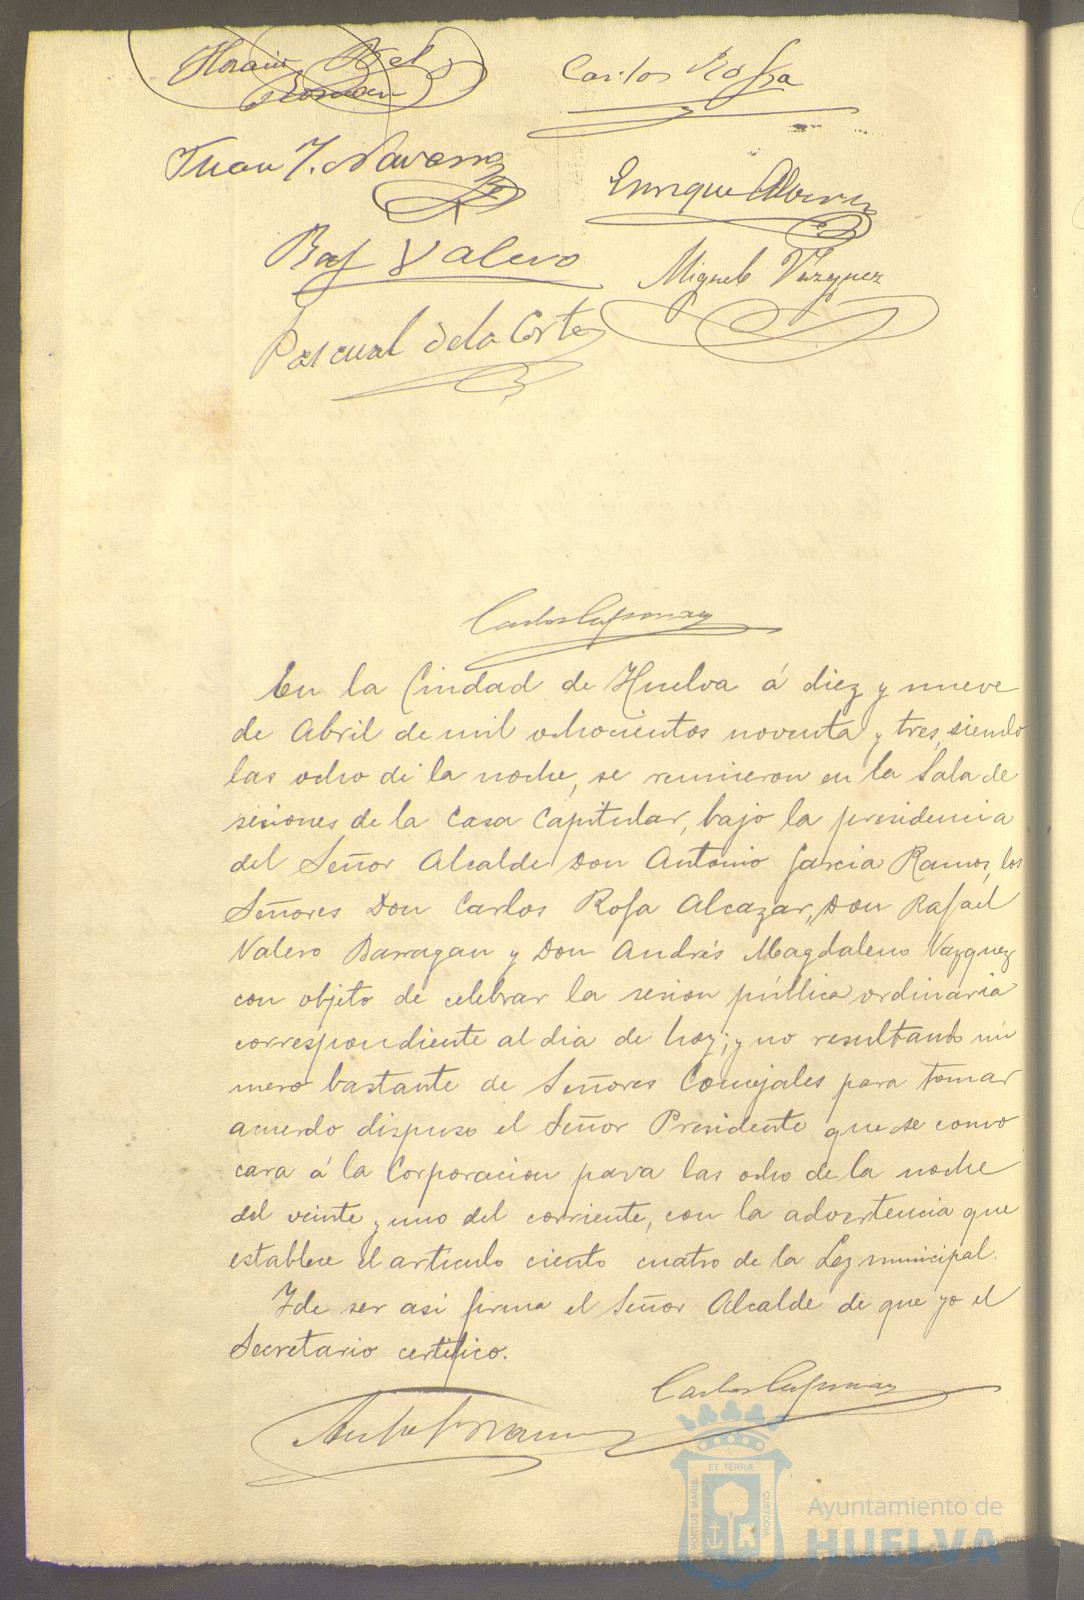 Horacio Bel
Roman
Carlos Rofa
Juan J. Navarro
Enrique
Raf Valero
Miguel Vazquez
Pascual de la Corte
Carlos
En la Ciudad de Huelva á diez y nueve
de Abril de mil ochocientos noventa y tres, siendo
las ocho de la noche, se reunieron en la Sala de
sesiones de la Casa Capitular, bajo la presidencia
del Señor Alcalde Don Antonio Garcia Ramos, los
Señores Don Carlos Rofa Alcazar, Don Rafael
Valero Barragan y Don Andrés Magdaleno Vazquez
con objeto de celebrar la sesion pública ordinaria
correspondiente al dia de hoy; y no resultando nú
mero bastante de Señores Concejales para tomar
acuerdo dispuso el Señor Presidente que se convo
cara á la Corporacion para las ocho de la noche
del veinte y uno del corriente, con la advertencia que
establece el articulo ciento cuatro de la Ley municipal.
Y de ser asi firma el Señor Alcalde de que yo el
Secretario certifico.
Carlos
Ant. G. Ramos
PORTUS MARIS
ET TERRÆ
CUSTODIA
Ayuntamiento de
HUELVA